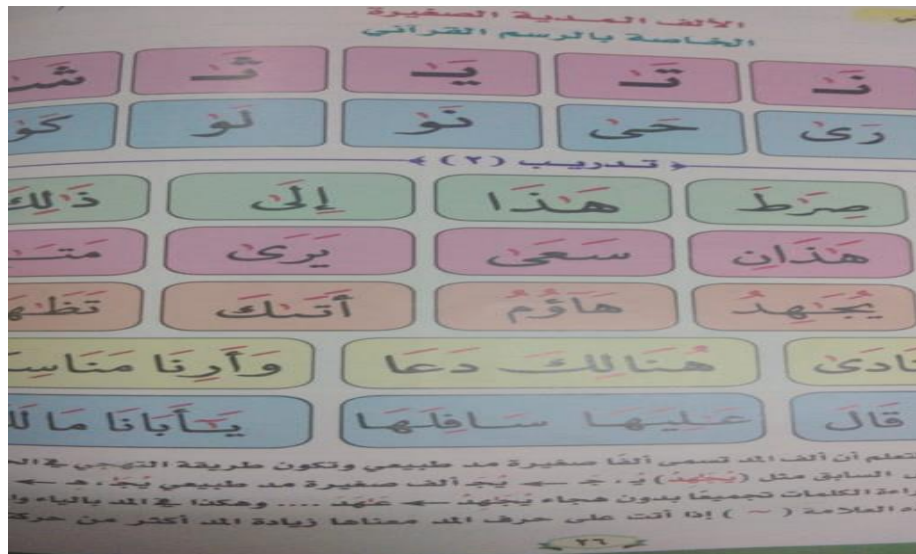 الألف المدية الصغيرة
الخاصة بالرسم القرآني
نَـٰ تَـٰ يَـٰ ثَـٰ شَـٰ
رَىٰ حَىٰ نَوٰ لَوٰ كَوٰ
تدريب (٢)
صِرَٰطَ هَـٰذَا إِلَىٰ ذَٰلِكَ
هَـٰذَانِ سَعَىٰ يَرَىٰ
يُجَـٰهِدُ هَاؤُمُ أَتَىٰكَ
نَادَىٰ هُنَالِكَ دَعَا وَأَرِنَا
قَالَ عَـٰلِيَهَا سَافِلَهَا يَـٰٓأَبَانَا مَا
أن ألف المد تسمى ألفًا صغيرة مد طبيعي وتكون طريقة التهجي في
السابق مثل (يُجَـٰهِدُ) يُ . جَـ ← يُجَـ ألف صغيرة مد طبيعي يُجَـٰ . هـ ←
الكلمات تجميعًا بدون هجاء يُجَـٰهِدُ ← عَـٰهَدَ .... وهكذا في المد بالياء
العلامة ( ~ ) إذا أتت على حرف المد معناها زيادة المد أكثر من
٢٦